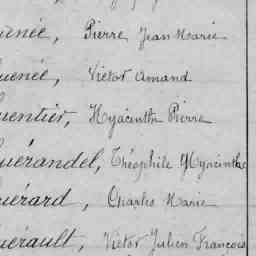 uenée, Pierre Jean Marie
uenée, Victor Amand
uentier, Hyacinthe Pierre
uérandel, Théophile Hyacinthe
uérard, Charles Marie
uérault, Victor Julien François